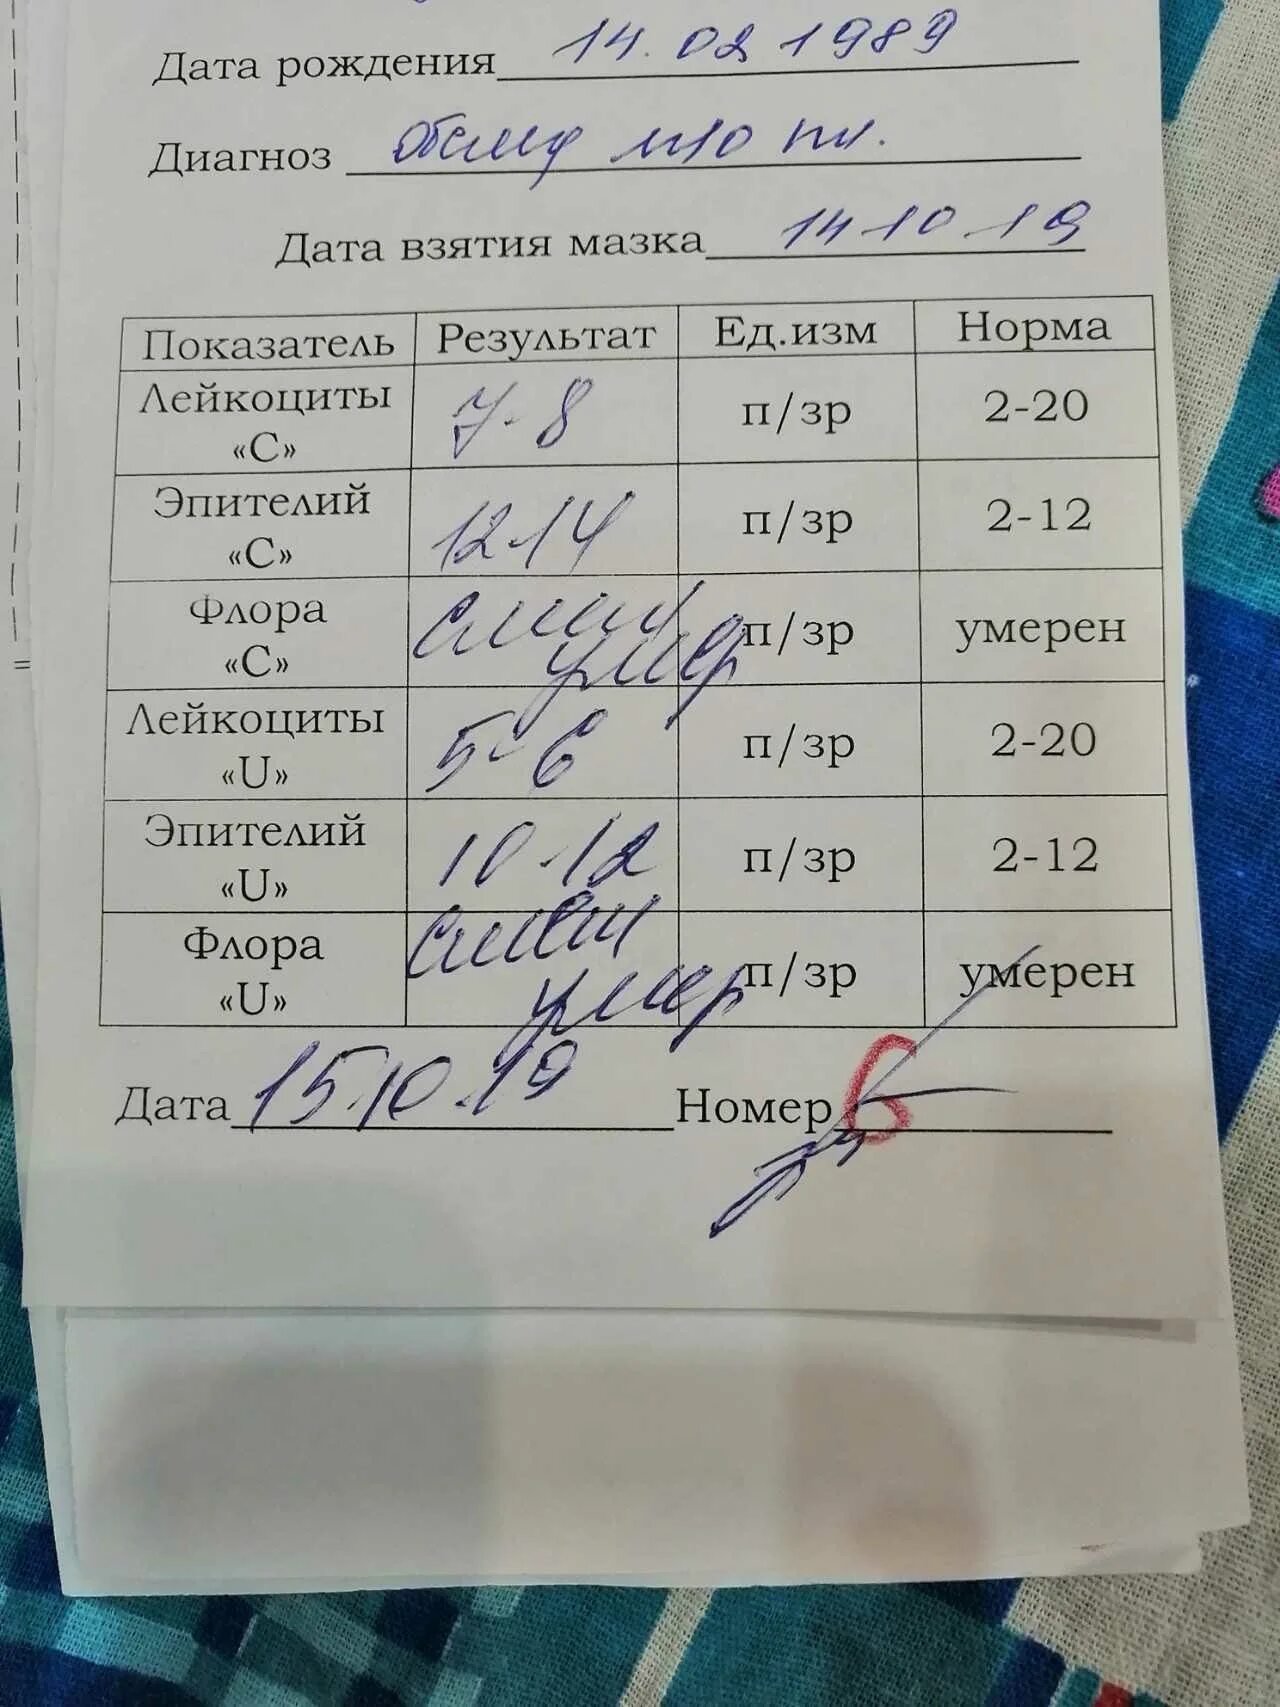 Дата рождения 14.02 1989
Диагноз м/о пл.
Дата взятия мазка 14.10.19
Показатель Результат Ед.изм Норма
Лейкоциты «С» 7-8 п/зр 2-20
Эпителий «С» 12-14 п/зр 2-12
Флора «С» смеш умер п/зр умерен
Лейкоциты «U» 5-6 п/зр 2-20
Эпителий «U» 10-12 п/зр 2-12
Флора «U» смеш умер п/зр умерен
Дата 15.10.19 Номер 6